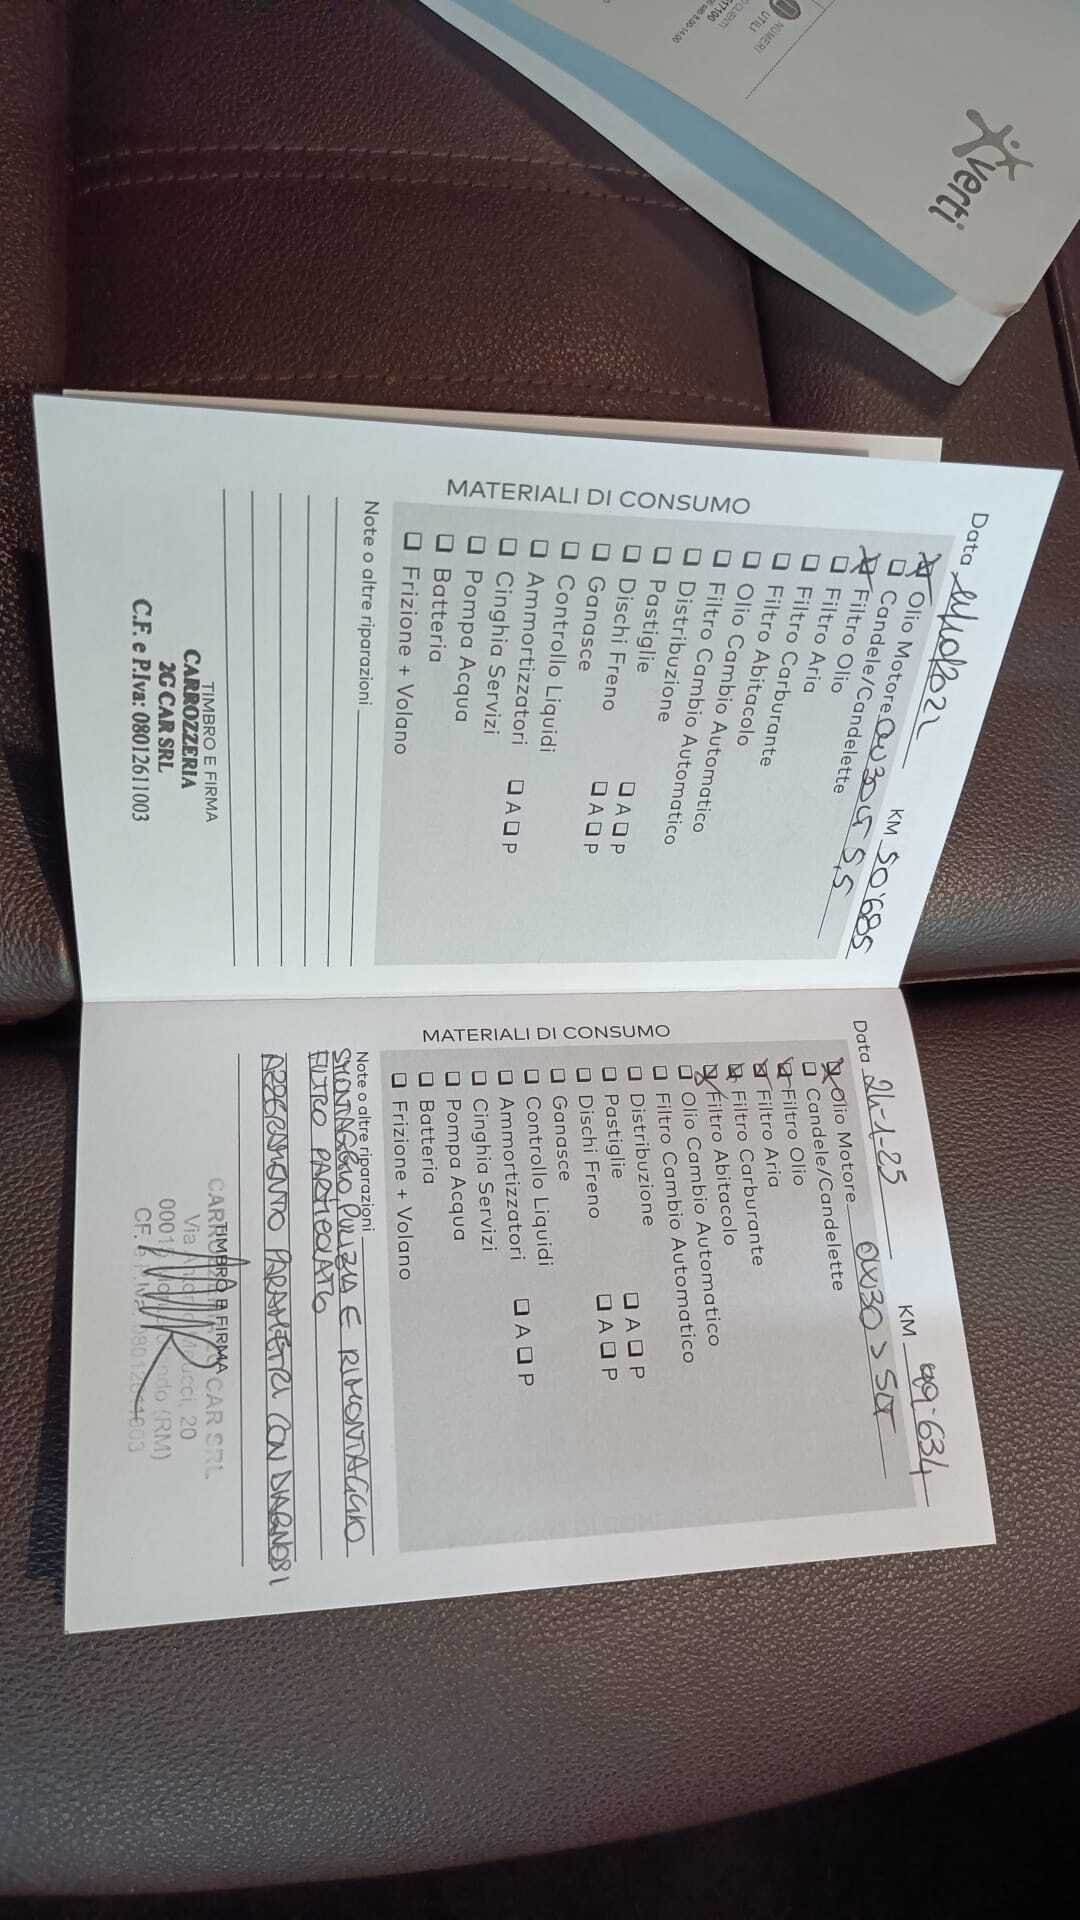 verti
NUMERI
UTILI
Data
KM 50'685
MATERIALI DI CONSUMO
Olio Motore 0W30 LT 5,5
Candele/Candelette
Filtro Olio
Filtro Aria
Filtro Carburante
Filtro Abitacolo
Olio Cambio Automatico
Filtro Cambio Automatico
Distribuzione
Pastiglie
Dischi Freno A P
Ganasce A P
Controllo Liquidi
Ammortizzatori A P
Cinghia Servizi
Pompa Acqua
Batteria
Frizione + Volano
Note o altre riparazioni
TIMBRO E FIRMA
CARROZZERIA
2G CAR SRL
C.F. e P.Iva: 08012611003
Data 24-1-25 KM 99.634
MATERIALI DI CONSUMO
Olio Motore 0W30
Candele/Candelette
Filtro Olio
Filtro Aria
Filtro Carburante
Filtro Abitacolo
Olio Cambio Automatico
Filtro Cambio Automatico
Distribuzione
Pastiglie A P
Dischi Freno A P
Ganasce
Controllo Liquidi
Ammortizzatori A P
Cinghia Servizi
Pompa Acqua
Batteria
Frizione + Volano
Note o altre riparazioni
SMONTAGGIO PULIZIA E RIMONTAGGIO
FILTRO PARTICOLATO
AZZERAMENTO PARAMETRI CON DIAGNOSI
TIMBRO E FIRMA
CAR SRL
20
(RM)